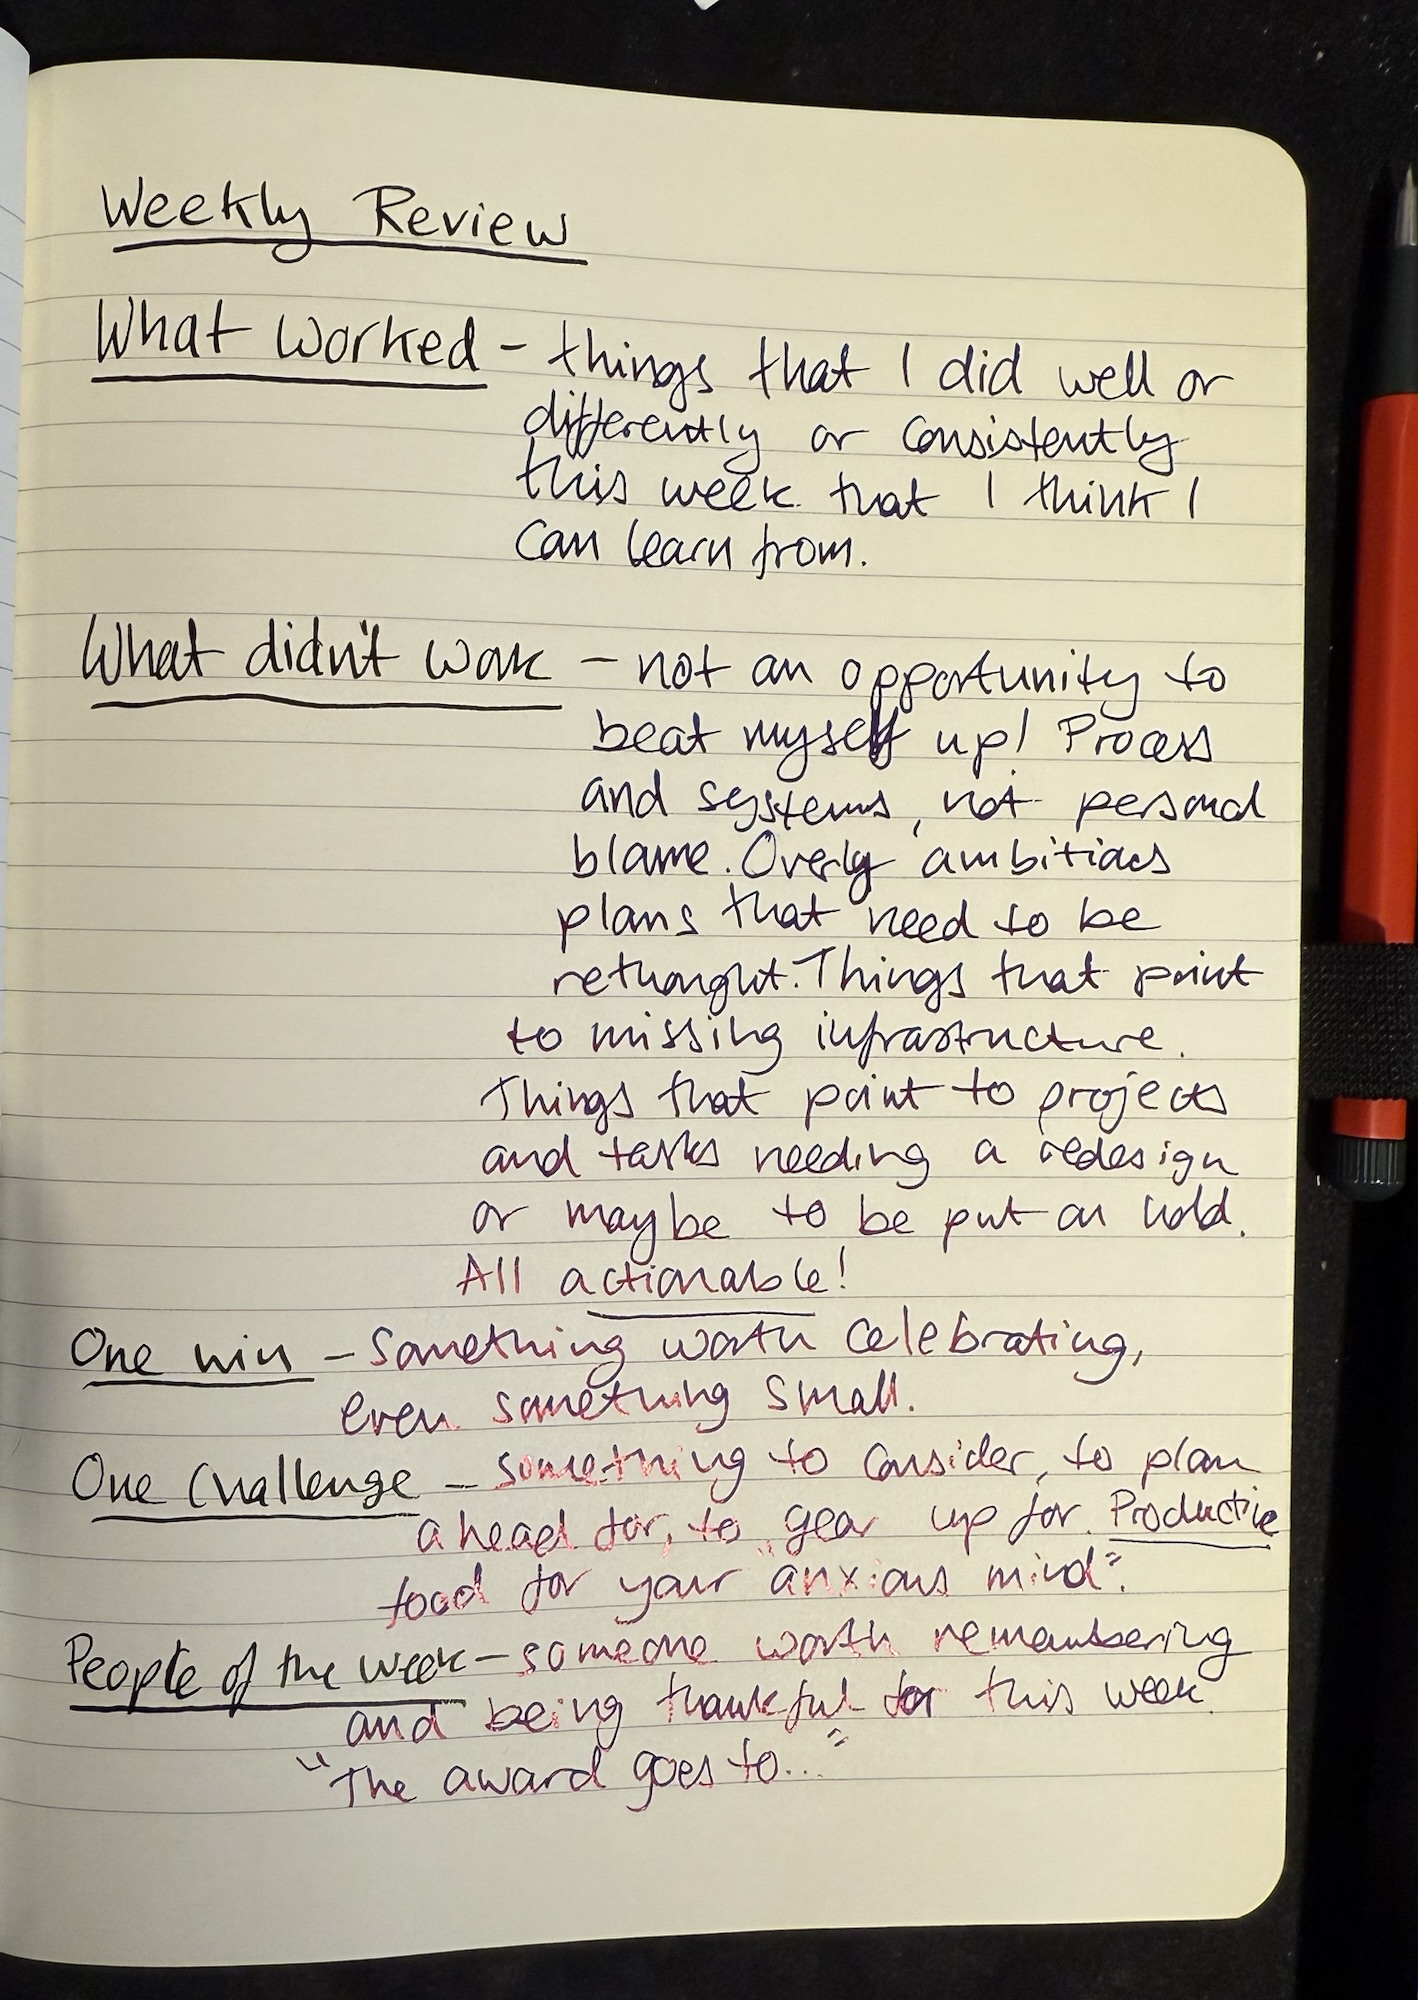 Weekly Review
What worked - things that I did well or
differently or consistently
this week that I think I
can learn from.
What didn't work - not an opportunity to
beat myself up! Process
and systems, not personal
blame. Overly ambitious
plans that need to be
rethought. Things that point
to missing infrastructure.
Things that point to projects
and tasks needing a redesign
or maybe to be put on hold.
All actionable!
One win - Something worth celebrating,
even something small.
One Challenge - something to consider, to plan
ahead for, to gear up for. Productive
food for your "anxious mind".
People of the week - someone worth remembering
and being thankful for this week.
"The award goes to..."